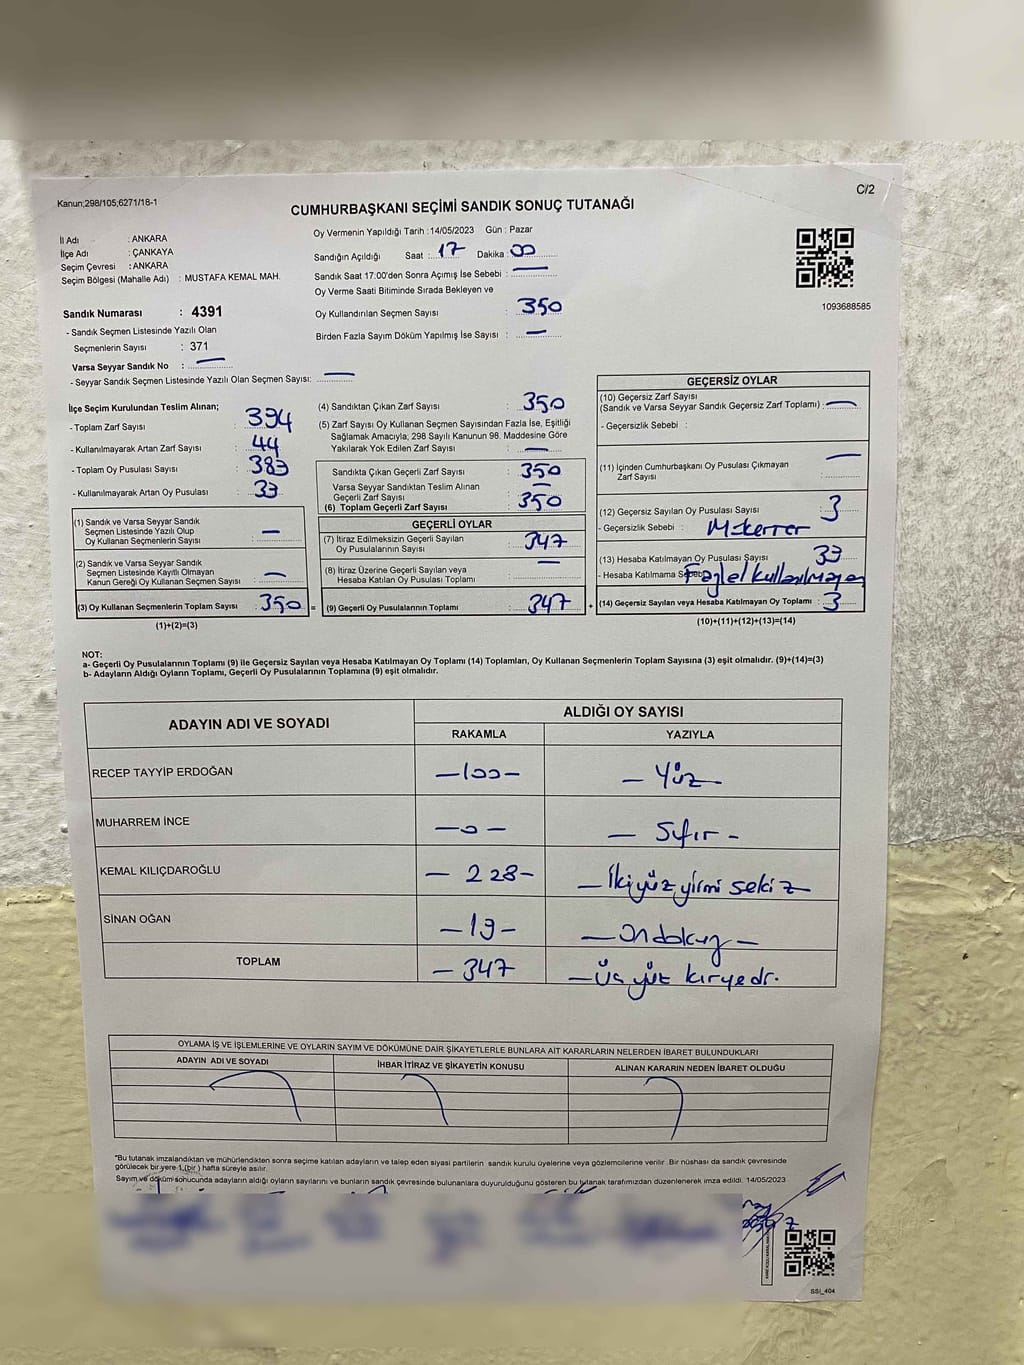 Kanun;298/105;6271/18-1
C/2
CUMHURBAŞKANI SEÇİMİ SANDIK SONUÇ TUTANAĞI
İl Adı : ANKARA
İlçe Adı : ÇANKAYA
Seçim Çevresi : ANKARA
Seçim Bölgesi (Mahalle Adı) : MUSTAFA KEMAL MAH.
Sandık Numarası : 4391
- Sandık Seçmen Listesinde Yazılı Olan
Seçmenlerin Sayısı : 371
Varsa Seyyar Sandık No : —
- Seyyar Sandık Seçmen Listesinde Yazılı Olan Seçmen Sayısı: —
Oy Vermenin Yapıldığı Tarih :14/05/2023 Gün : Pazar
Sandığın Açıldığı Saat : 17 Dakika : 00
Sandık Saat 17:00'den Sonra Açımış İse Sebebi : —
Oy Verme Saati Bitiminde Sırada Bekleyen ve
Oy Kullandırılan Seçmen Sayısı : 350
Birden Fazla Sayım Döküm Yapılmış İse Sayısı : —
1093688585
İlçe Seçim Kurulundan Teslim Alınan;
- Toplam Zarf Sayısı : 394
- Kullanılmayarak Artan Zarf Sayısı : 44
- Toplam Oy Pusulası Sayısı : 383
- Kullanılmayarak Artan Oy Pusulası : 33
(1) Sandık ve Varsa Seyyar Sandık
Seçmen Listesinde Yazılı Olup
Oy Kullanan Seçmenlerin Sayısı : —
(2) Sandık ve Varsa Seyyar Sandık
Seçmen Listesinde Kayıtlı Olmayan
Kanun Gereği Oy Kullanan Seçmen Sayısı : —
(3) Oy Kullanan Seçmenlerin Toplam Sayısı : 350 =
(1)+(2)=(3)
(4) Sandıktan Çıkan Zarf Sayısı : 350
(5) Zarf Sayısı Oy Kullanan Seçmen Sayısından Fazla İse, Eşitliği
Sağlamak Amacıyla, 298 Sayılı Kanunun 98. Maddesine Göre
Yakılarak Yok Edilen Zarf Sayısı : —
Sandıkta Çıkan Geçerli Zarf Sayısı : 350
Varsa Seyyar Sandıktan Teslim Alınan
Geçerli Zarf Sayısı : —
(6) Toplam Geçerli Zarf Sayısı : 350
GEÇERLİ OYLAR
(7) İtiraz Edilmeksizin Geçerli Sayılan
Oy Pusulalarının Sayısı : 347
(8) İtiraz Üzerine Geçerli Sayılan veya
Hesaba Katılan Oy Pusulası Toplamı : —
(9) Geçerli Oy Pusulalarının Toplamı : 347 +
GEÇERSİZ OYLAR
(10) Geçersiz Zarf Sayısı
(Sandık ve Varsa Seyyar Sandık Geçersiz Zarf Toplamı) : —
- Geçersizlik Sebebi :
(11) İçinden Cumhurbaşkanı Oy Pusulası Çıkmayan
Zarf Sayısı : —
(12) Geçersiz Sayılan Oy Pusulası Sayısı : 3
- Geçersizlik Sebebi : Mükerrer
(13) Hesaba Katılmayan Oy Pusulası Sayısı : 33
- Hesaba Katılmama Sebebi
(14) Geçersiz Sayılan veya Hesaba Katılmayan Oy Toplamı : 3
(10)+(11)+(12)+(13)=(14)
NOT:
a- Geçerli Oy Pusulalarının Toplamı (9) ile Geçersiz Sayılan veya Hesaba Katılmayan Oy Toplamı (14) Toplamları, Oy Kullanan Seçmenlerin Toplam Sayısına (3) eşit olmalıdır. (9)+(14)=(3)
b- Adayların Aldığı Oyların Toplamı, Geçerli Oy Pusulalarının Toplamına (9) eşit olmalıdır.
ADAYIN ADI VE SOYADI
ALDIĞI OY SAYISI
RAKAMLA YAZIYLA
RECEP TAYYİP ERDOĞAN —100— — Yüz —
MUHARREM İNCE —0— — Sıfır —
KEMAL KILIÇDAROĞLU — 228 — — İkiyüz yirmi sekiz —
SİNAN OĞAN —19— — Ondokuz —
TOPLAM — 347 — Üç yüz kıryedi.
OYLAMA İŞ VE İŞLEMLERİNE VE OYLARIN SAYIM VE DÖKÜMÜNE DAİR ŞİKAYETLERLE BUNLARA AİT KARARLARIN NELERDEN İBARET BULUNDUKLARI
ADAYIN ADI VE SOYADI İHBAR İTİRAZ VE ŞİKAYETİN KONUSU ALINAN KARARIN NEDEN İBARET OLDUĞU
"Bu tutanak imzalandıktan ve mühürlendikten sonra seçime katılan adayların ve talep eden siyasi partilerin sandık kurulu üyelerine veya gözlemcilerine verilir. Bir nüshası da sandık çevresinde
görülecek bir yere 1 (bir) hafta süreyle asılır.
Sayım ve döküm sonucunda adayların aldığı oyların sayılarını ve bunların sandık çevresinde bulunanlara duyurulduğunu gösteren bu tutanak tarafımızdan düzenlenerek imza edildi. 14/05/2023
SSI_404